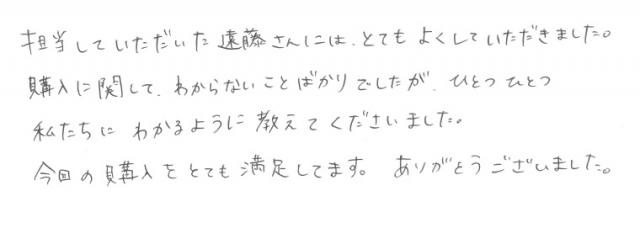 担当していただいた遠藤さんには、とてもよくしていただきました。
購入に関して、わからないことばかりでしたが、ひとつひとつ
私たちにわかるように教えてくださいました。
今回の購入をとても満足してます。ありがとうございました。